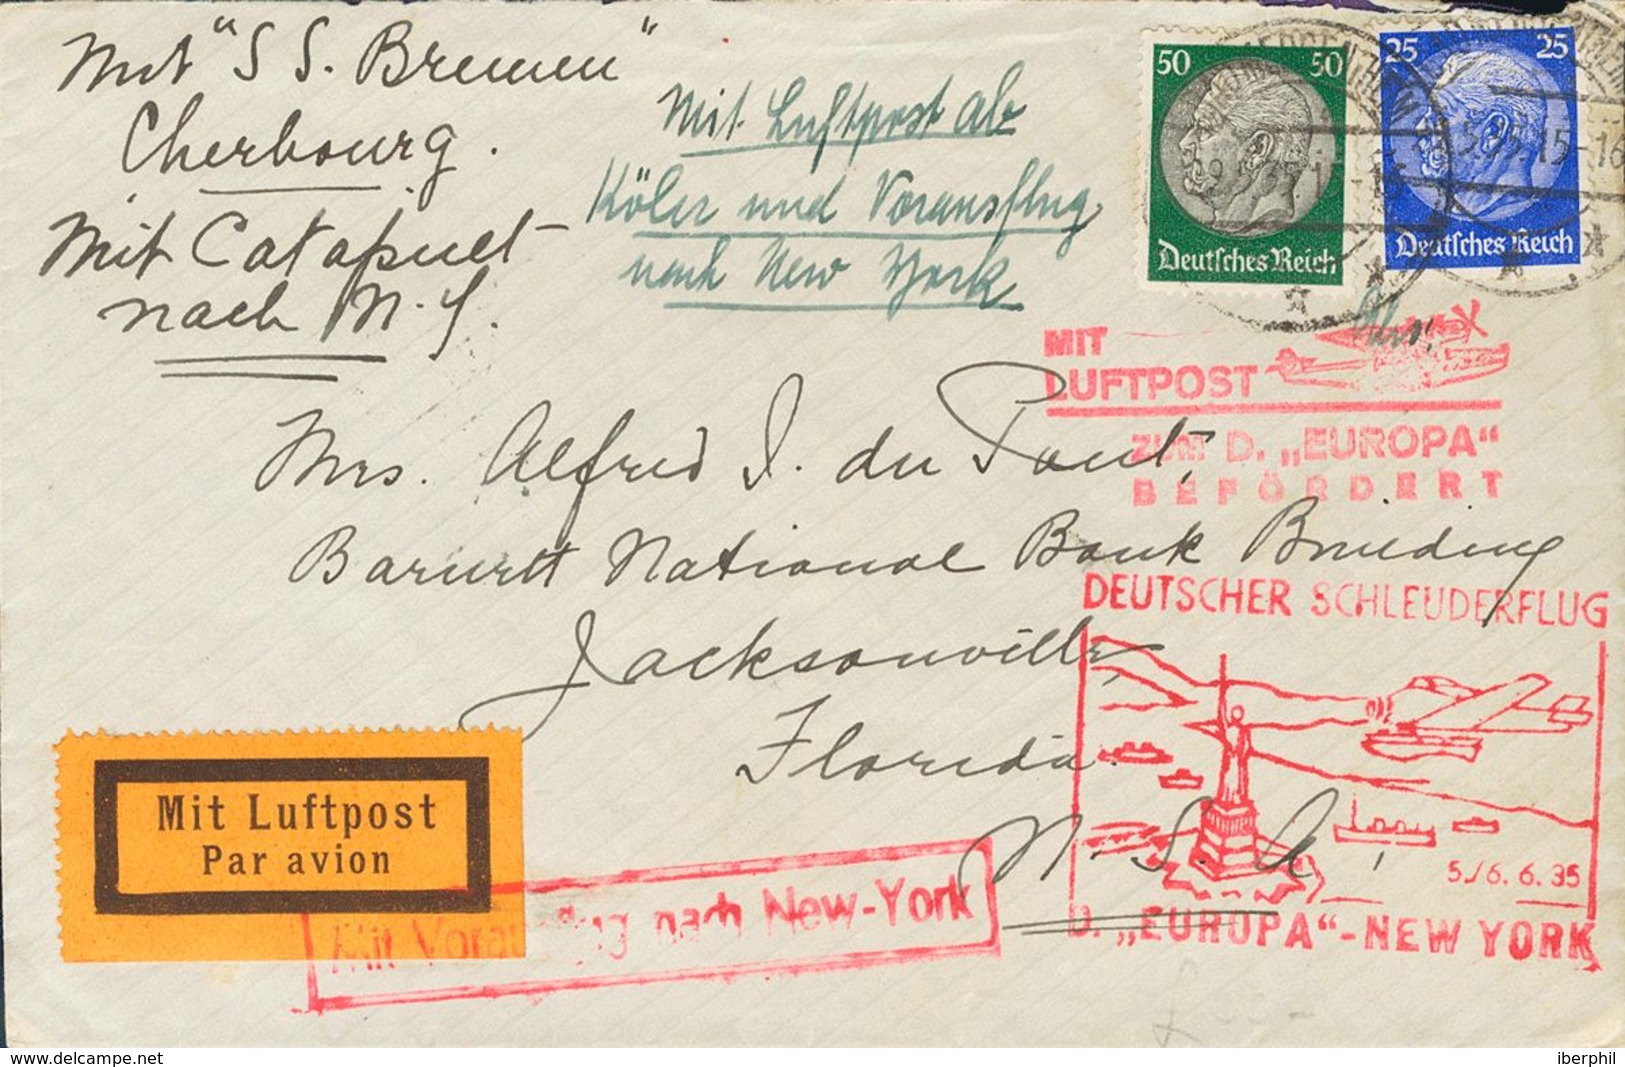 Mit "S S. Bremen"
Cherbourg.
Mit Catapult
nach N. Y.
Mit Luftpost ab
Köln und Vorausflug
nach New York
50 50
Deutsches Reich
25 25
Deutsches Reich
5.35.15-16
MIT
LUFTPOST
ZUM D. „EUROPA“
BEFÖRDERT
Mrs. Alfred I. du Pont,
Barnett National Bank Building
Jacksonville,
Florida.
U. S. A.
DEUTSCHER SCHLEUDERFLUG
5./6. 6. 35
D. „EUROPA“-NEW YORK
Mit Luftpost
Par avion
Mit Vorausflug nach New-York
delcampe.net
iberphil